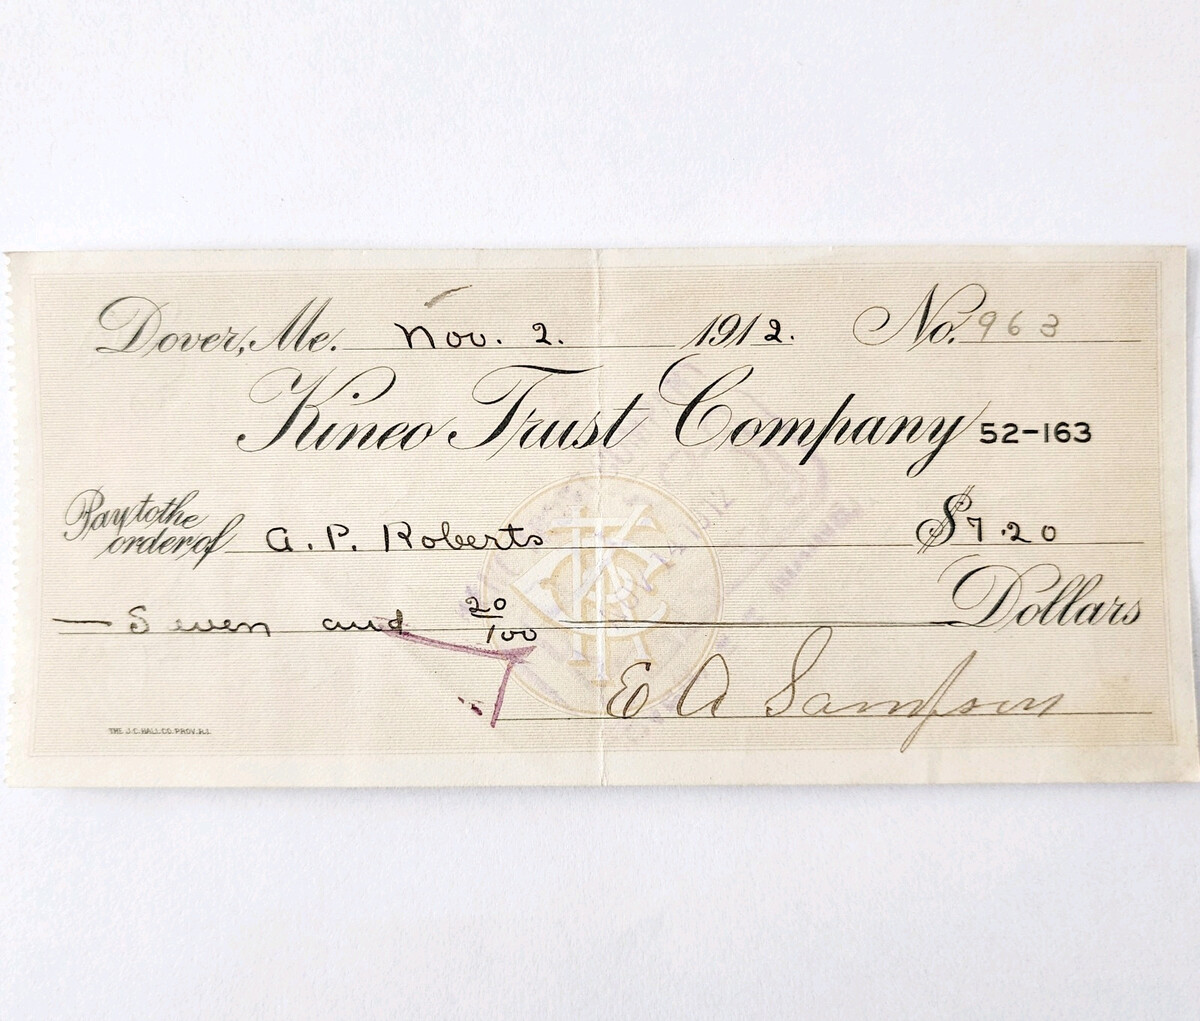 Dover, Me. Nov. 2. 1912. No. 963
Kineo Trust Company 52-163
Pay to the order of A. P. Roberts $7.20
Seven and 20/100 Dollars
E A Sampson
THE J.C. HALL CO. PROV. R.I.